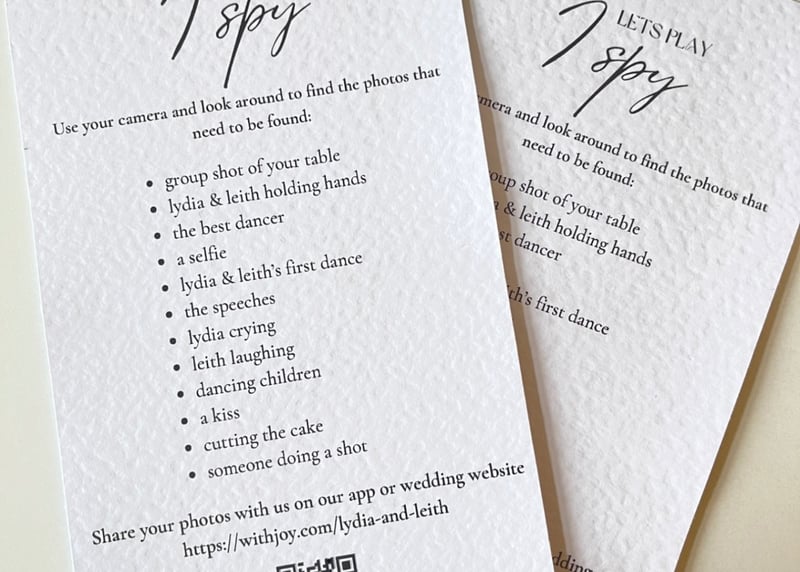 I
spy
Use your camera and look around to find the photos that
need to be found:
• group shot of your table
• lydia & leith holding hands
• the best dancer
• a selfie
• lydia & leith's first dance
• the speeches
• lydia crying
• leith laughing
• dancing children
• a kiss
• cutting the cake
• someone doing a shot
Share your photos with us on our app or wedding website
https://withjoy.com/lydia-and-leith
LETS PLAY
I
spy
and look around to find the photos that
need to be found:
shot of your table
& leith holding hands
dancer
first dance